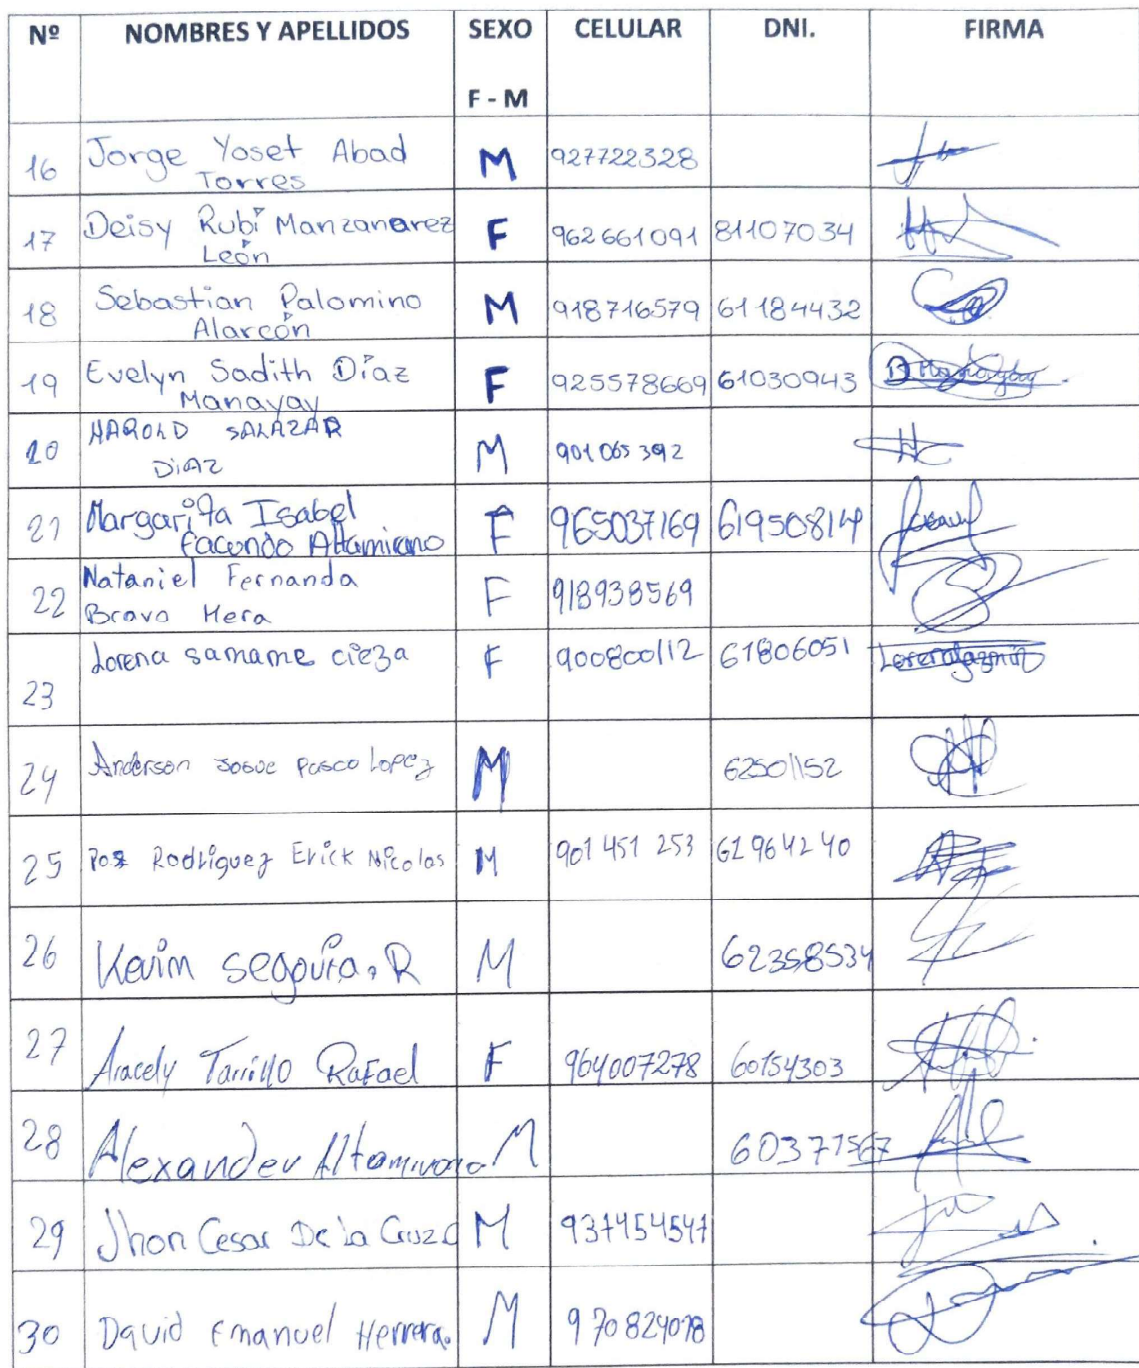 Nº NOMBRES Y APELLIDOS SEXO CELULAR DNI. FIRMA
F - M
16 Jorge Yoset Abad M 927722328
Torres
17 Deisy Rubí Manzanarez F 962661091 81107034
León
18 Sebastian Palomino M 918716579 61184432
Alarcón
19 Evelyn Sadith Díaz F 925578669 61030943
Manayay
20 HAROLD SALAZAR M 901065392
DIAZ
21 Margarita Isabel F 965037169 61950814
Facundo Altamirano
22 Nataniel Fernanda F 918938569
Bravo Mera
23 Lorena samame cieza F 900800112 61806051
24 Anderson Josue Pasco Lopez M 62501152
25 Rodriguez Erick Nicolas M 901 451 253 61964240
26 Kevim segovia. R M 62358534
27 Aracely Tarrillo Rafael F 964007278 60154303
28 Alexander Altamirano M 60371567
29 Jhon Cesar De la Cruz M 937454547
30 David Emanuel Herrera. M 970824078